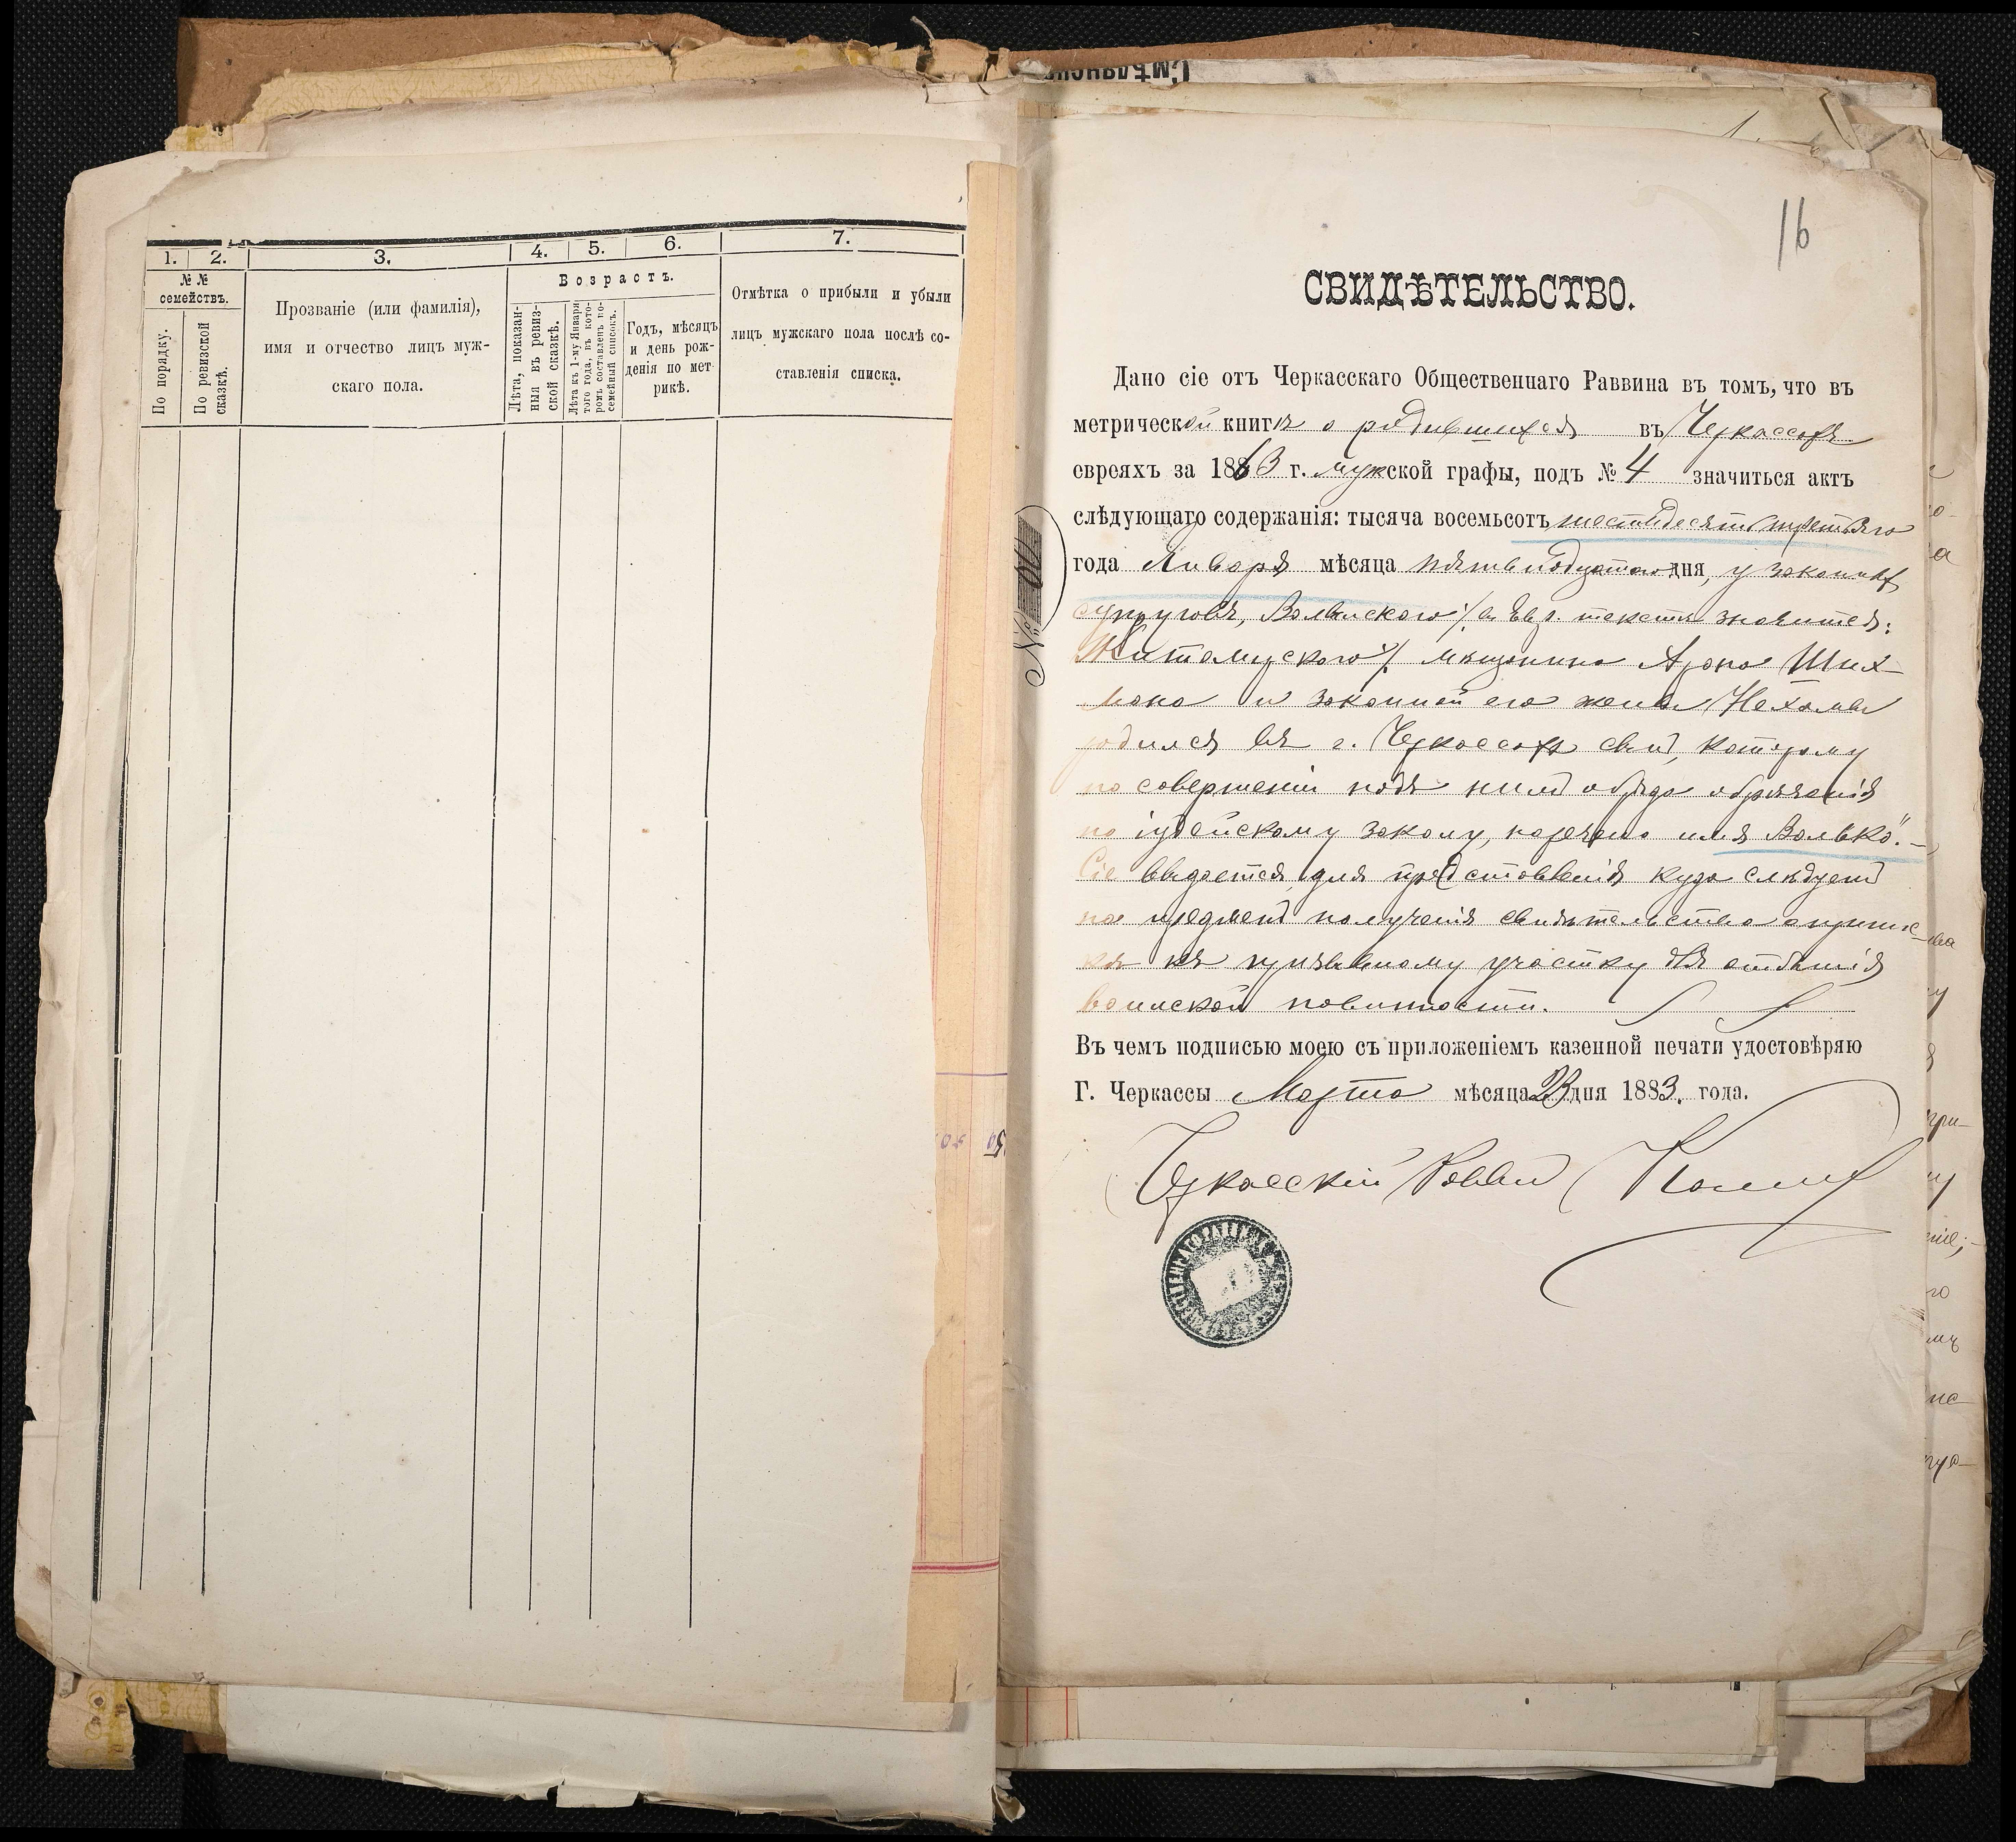 Смѣлянск
1. 2. 3. 4. 5. 6. 7.
№№ семействъ.
По порядку.
По ревизской сказкѣ.
Прозваніе (или фамилія),
имя и отчество лицъ муж-
скаго пола.
Возрастъ.
Лѣта, показан-
ныя въ ревиз-
ской сказкѣ.
Лѣта къ 1-му Января
того года, въ кото-
ромъ составленъ по-
семейный списокъ.
Годъ, мѣсяцъ
и день рож-
денія по мет-
рикѣ.
Отмѣтка о прибыли и убыли
лицъ мужскаго пола послѣ со-
ставленія списка.
16
СВИДѢТЕЛЬСТВО.
Дано сіе отъ Черкасскаго Общественнаго Раввина въ томъ, что въ
метрической книгѣ о родившихся въ Черкассахъ
евреяхъ за 1863 г. мужской графы, подъ № 4 значиться актъ
слѣдующаго содержанія: тысяча восемьсотъ шестьдесятъ третьяго
года Января мѣсяца пятнадцатаго дня, у законныхъ
супруговъ, Волынскаго /въ Евр. текстѣ значится:
Житомирскаго/ мѣщанина Арона Ших-
мана и законной его жены Нехамы
родился въ г. Черкассахъ сынъ, которому
по совершеніи надъ нимъ обряда обрѣзанія
по іудейскому закону, наречено имя Волько".—
Сіе выдается для представленія куда слѣдуетъ
на предметъ полученія свидѣтельства о припис-
кѣ къ призывному участку для отбытія
воинской повинности.
Въ чемъ подписью моею съ приложеніемъ казенной печати удостовѣряю
Г. Черкассы Марта мѣсяца 23 дня 1883. года.
Черкасскій Раввинъ